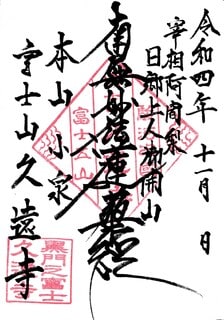 令和四年十一月 日
宰相阿闍梨
日郷上人御開山
南無妙法蓮華経
富士五山
本山 小泉
富士山久遠寺
黒門之富士
久遠寺